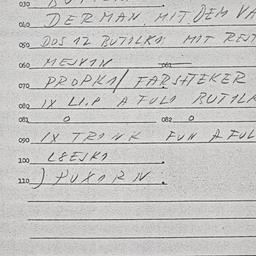 030
040 DERMAN, MIT DEM VA
050 DOS 12 BUTILKA MIT REJ
060 MEJVAN 061
070 PROPKA/FARSHTEKER
080 IX LI.P A FULA BUTILK
081 0 082 0
090 IX TRONK FUN A FUL
100 LSEJKA
110 ) PUXARN.